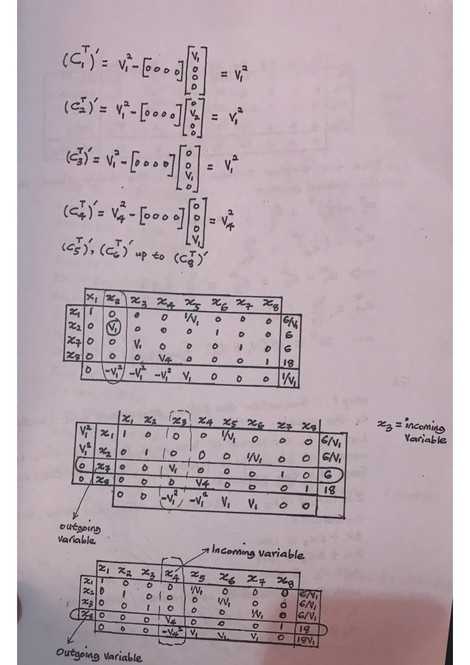 (C₁ᵀ)′ = V₁² - [0 0 0 0] [V₁ 0 0 0] = V₁²
(C₂ᵀ)′ = V₁² - [0 0 0 0] [0 V₂ 0 0] = V₁²
(C₃ᵀ)′ = V₁² - [0 0 0 0] [0 0 V₁ 0] = V₁²
(C₄ᵀ)′ = V₄² - [0 0 0 0] [0 0 0 V₁] = V₄²
(C₅ᵀ)′, (C₆ᵀ)′ up to (C₈ᵀ)′
x₁ x₂ x₃ x₄ x₅ x₆ x₇ x₈
x₁ 1 0 0 0 1/V₁ 0 0 0 6/V₁
x₂ 0 V₁ 0 0 0 1 0 0 6
x₇ 0 0 V₁ 0 0 0 1 0 6
x₈ 0 0 0 V₄ 0 0 0 1 18
0 -V₁² -V₁² -V₁² V₁ 0 0 0 1/V₁
x₁ x₂ x₃ x₄ x₅ x₆ x₇ x₈
V₁² x₁ 1 0 0 0 1/V₁ 0 0 0 6/V₁
V₁² x₂ 0 1 0 0 0 1/V₁ 0 0 6/V₁
0 x₇ 0 0 V₁ 0 0 0 1 0 6
0 x₈ 0 0 0 V₄ 0 0 0 1 18
0 0 -V₁² -V₁² V₁ V₁ 0 0
x₃ = incoming
variable
outgoing
variable
Incoming variable
x₁ x₂ x₃ x₄ x₅ x₆ x₇ x₈
x₁ 1 0 0 0 1/V₁ 0 0 0 6/V₁
x₂ 0 1 0 0 0 1/V₁ 0 0 6/V₁
x₃ 0 0 1 0 0 0 1/V₁ 0 6/V₁
x₈ 0 0 0 V₄ 0 0 0 1 18
0 0 0 -V₄² V₁ V₁ V₁ 0 18V₁
Outgoing variable